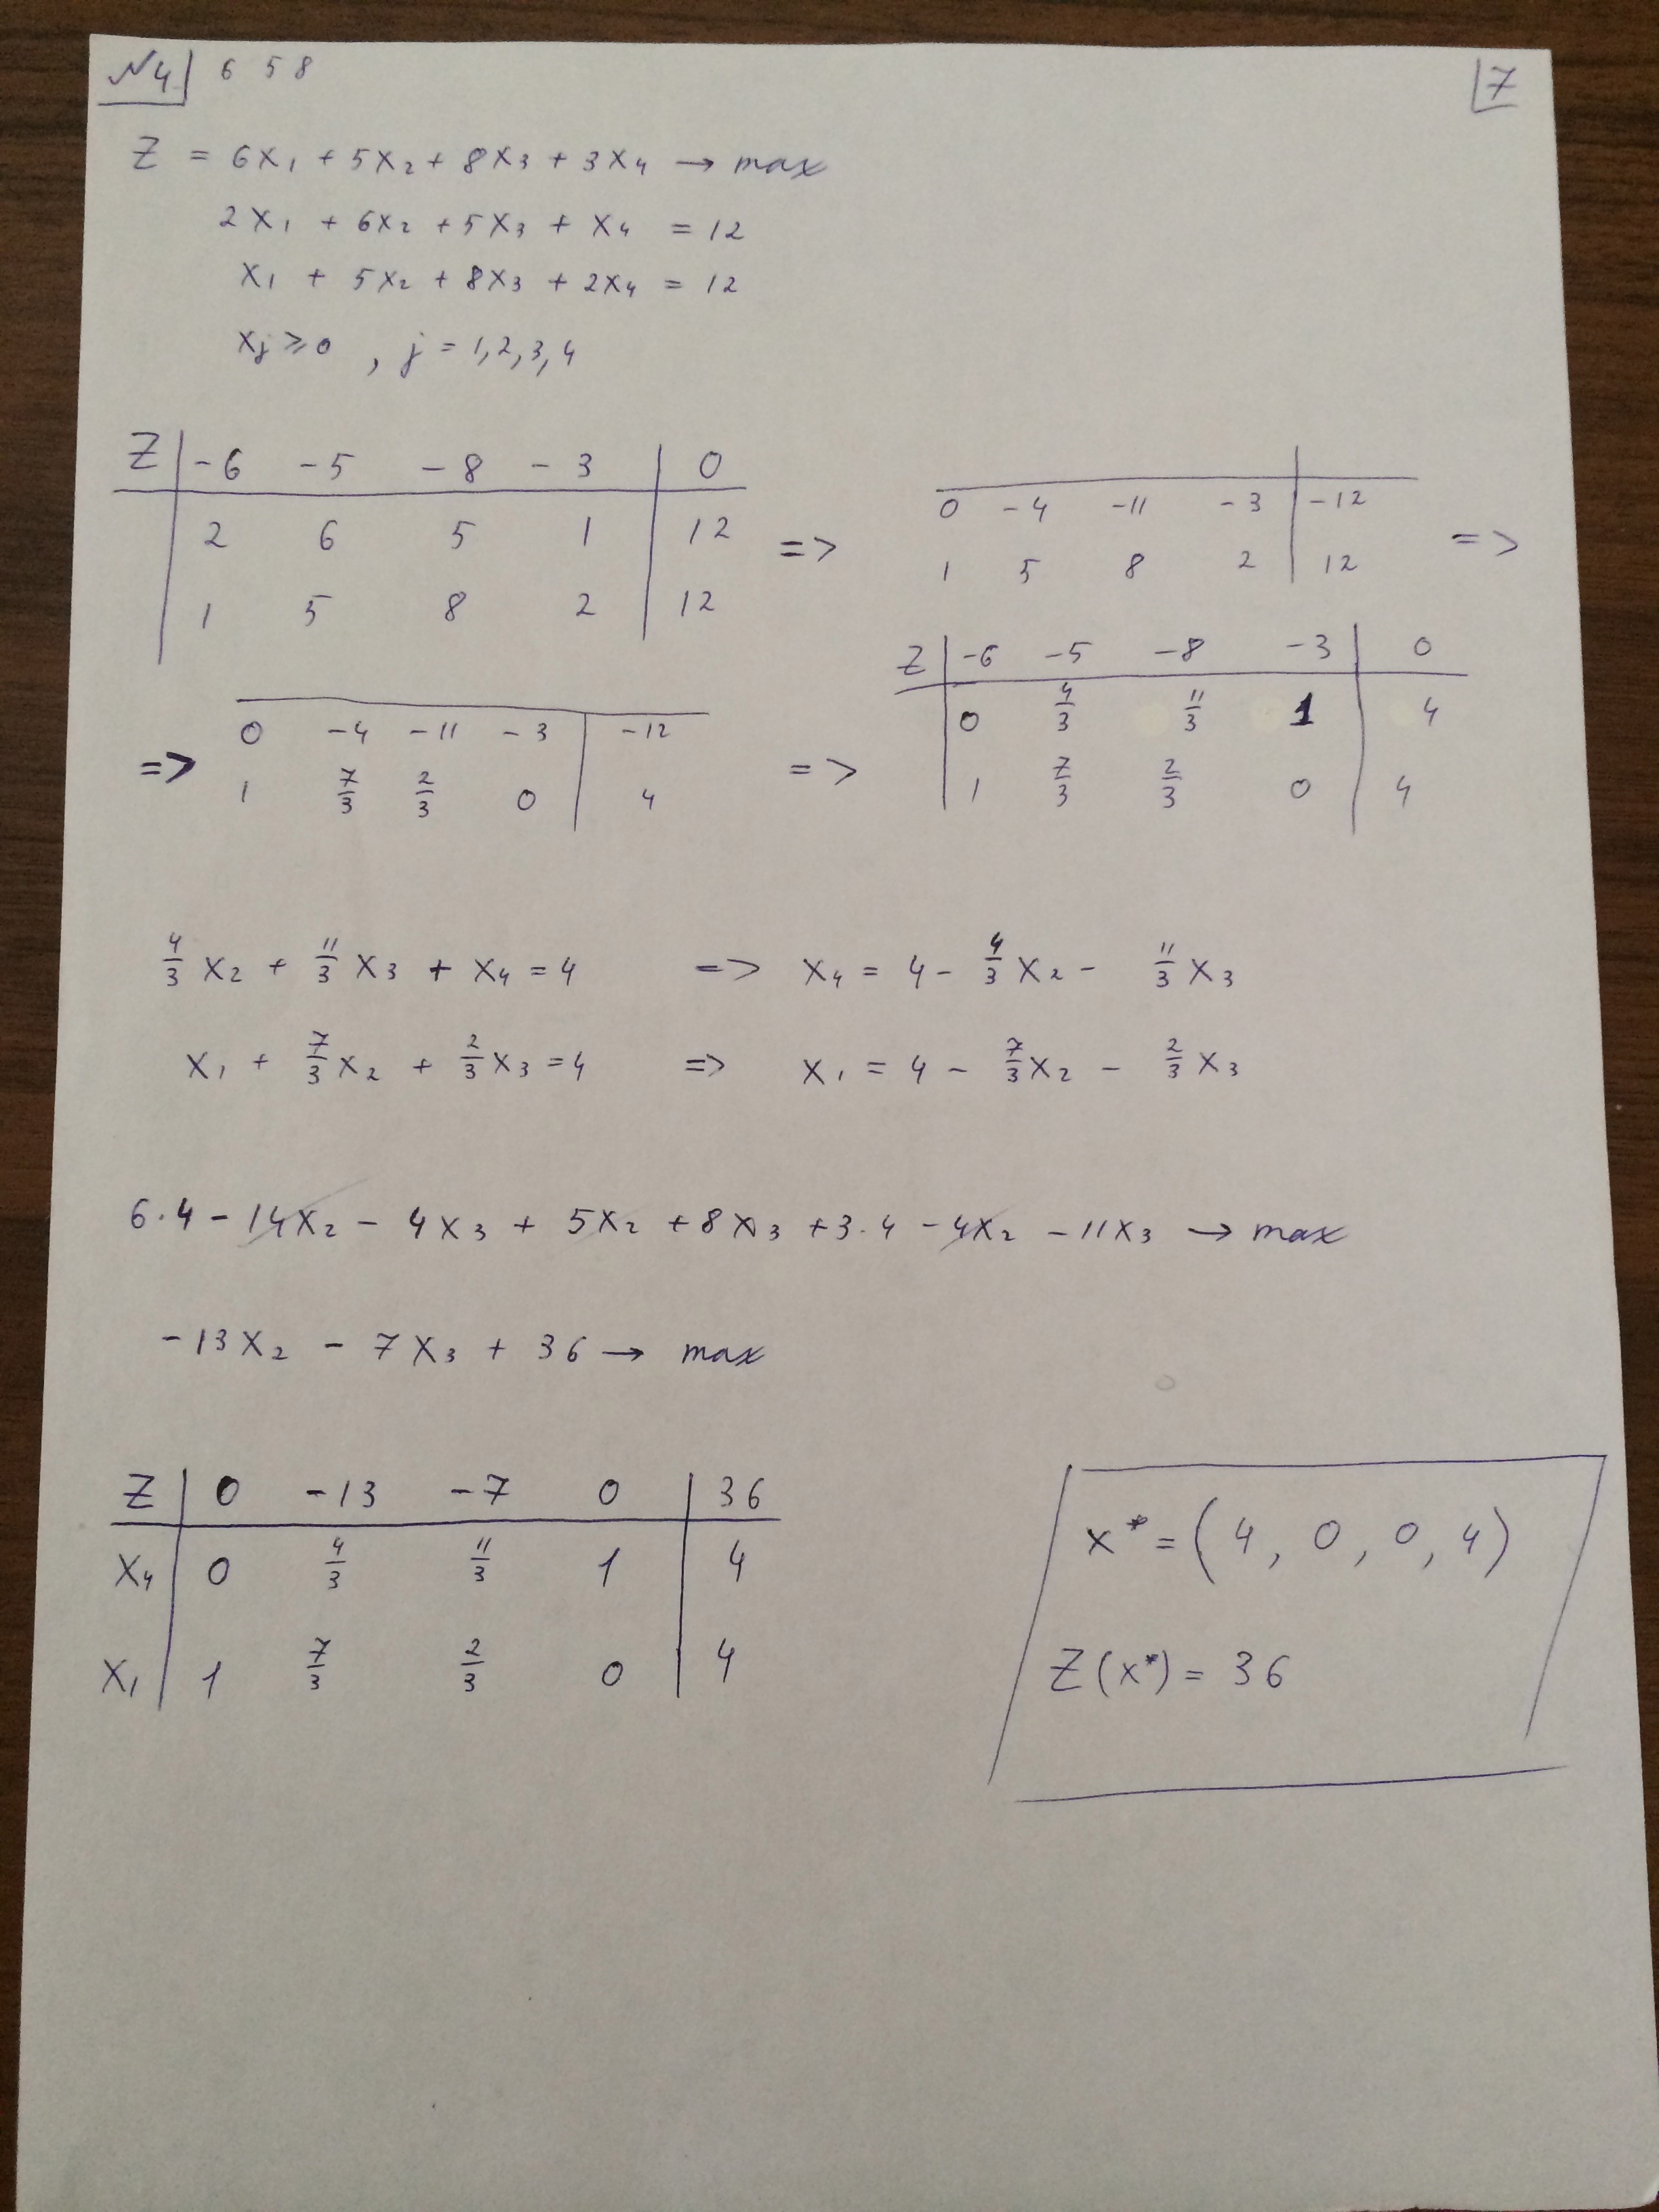 N4 6 5 8 7
Z = 6x₁ + 5x₂ + 8x₃ + 3x₄ → max
2x₁ + 6x₂ + 5x₃ + x₄ = 12
x₁ + 5x₂ + 8x₃ + 2x₄ = 12
xⱼ ⩾ 0 , j = 1,2,3,4
Z | -6 -5 -8 -3 | 0
2 6 5 1 | 12
1 5 8 2 | 12
=>
0 -4 -11 -3 | -12
1 5 8 2 | 12
=>
=>
0 -4 -11 -3 | -12
1 7/3 2/3 0 | 4
=>
Z | -6 -5 -8 -3 | 0
0 4/3 11/3 1 | 4
1 7/3 2/3 0 | 4
4/3 x₂ + 11/3 x₃ + x₄ = 4 => x₄ = 4 - 4/3 x₂ - 11/3 x₃
x₁ + 7/3 x₂ + 2/3 x₃ = 4 => x₁ = 4 - 7/3 x₂ - 2/3 x₃
6·4 - 14x₂ - 4x₃ + 5x₂ + 8x₃ + 3·4 - 4x₂ - 11x₃ → max
-13x₂ - 7x₃ + 36 → max
Z | 0 -13 -7 0 | 36
x₄ | 0 4/3 11/3 1 | 4
x₁ | 1 7/3 2/3 0 | 4
x* = (4, 0, 0, 4)
Z(x*) = 36